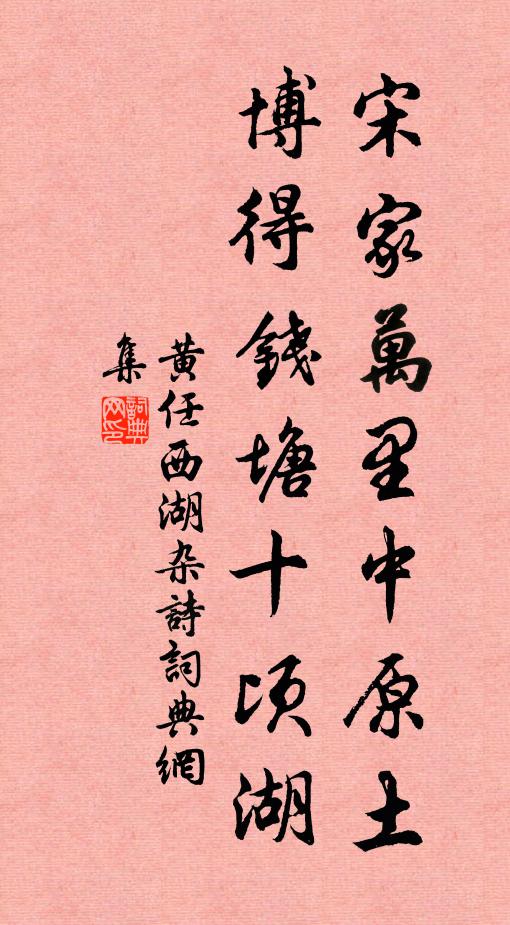 宋家萬里中原土
博得錢塘十頃湖
黄任西湖杂詩詞典網
集
詞典網印